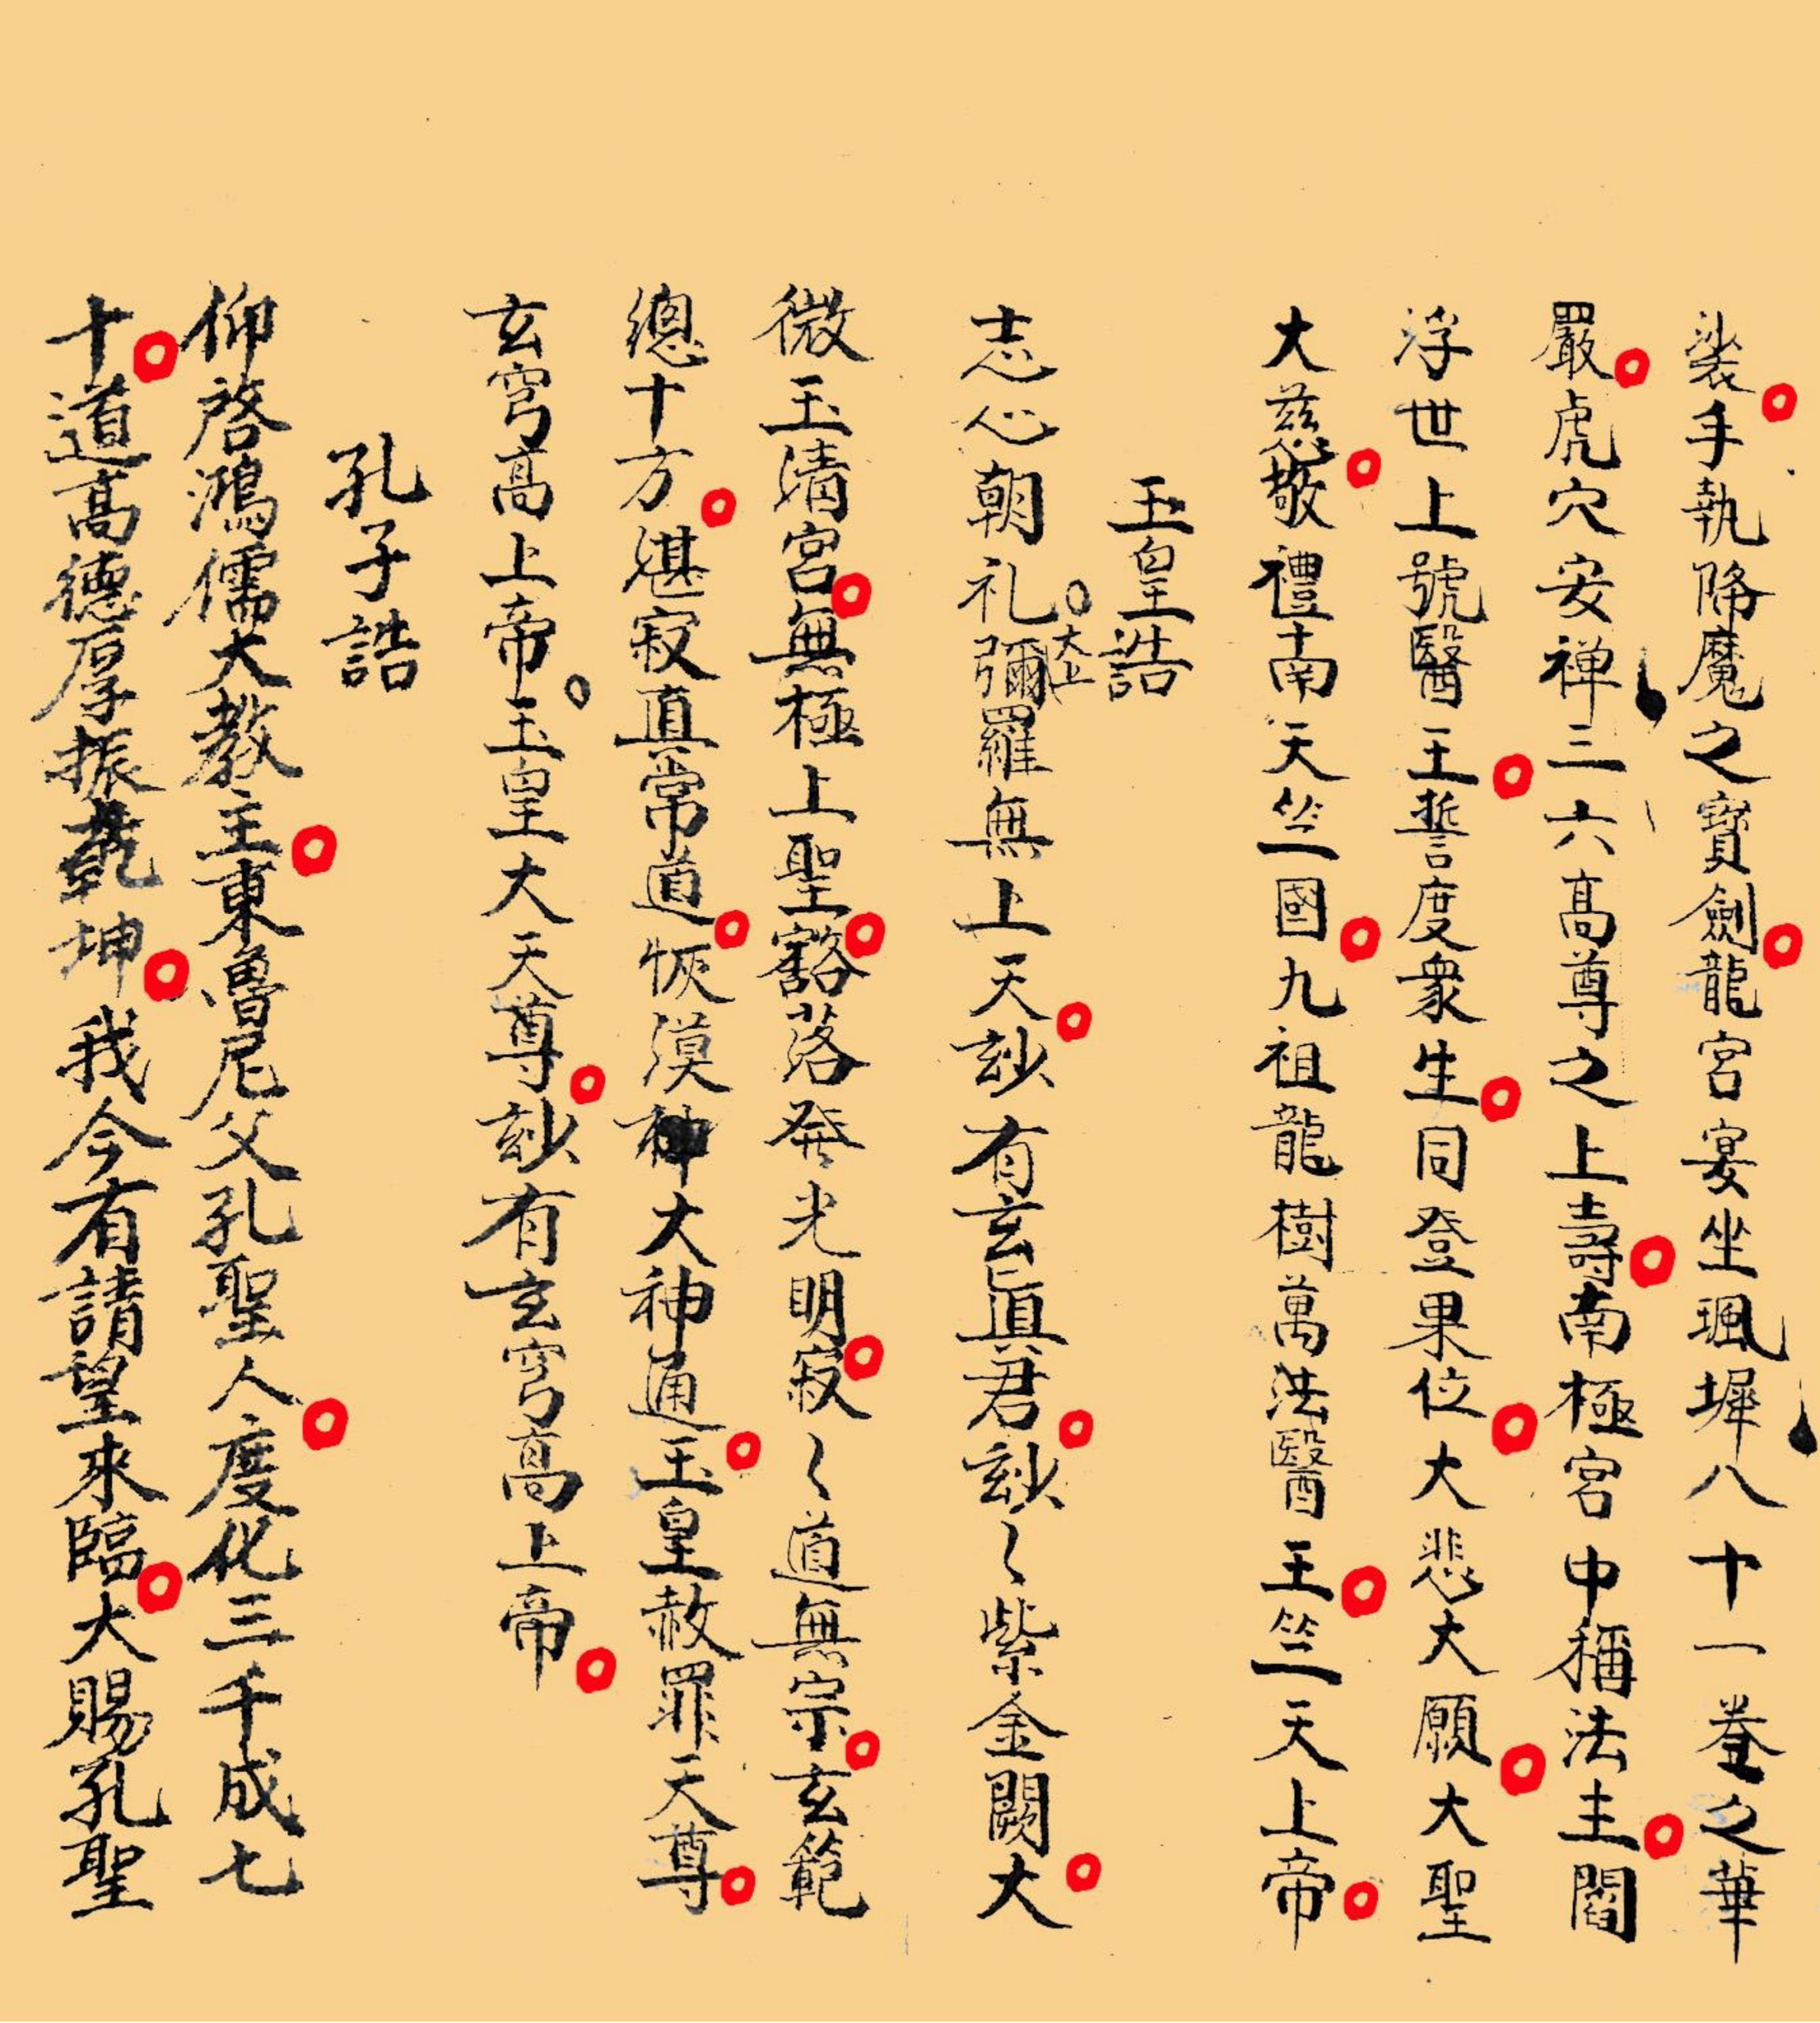 裟手執降魔之寳劍龍宮宴坐珮墀八十一巻之華
嚴虎穴安禅三六髙尊之上壽南極宮中稱法主閻
浮世上號醫王誓度衆生同登果位大悲大願大聖
大慈敬禮南天竺國九祖龍樹萬法醫王竺天上帝
玉皇誥
志心朝礼彌羅無上天玅有玄眞君玅〻紫金闕大
太上
微玉清宮無極上聖豁落発光明寂〻道無宗玄範
總十方湛寂真常道恢漠神大神通玉皇赦罪天尊
玄穹髙上帝玉皇大天尊玅有玄穹髙上帝
孔子誥
仰啓鴻儒大教主東魯尼父孔聖人度化三千成七
十道髙德厚振乾坤我今有請望來臨大賜孔聖